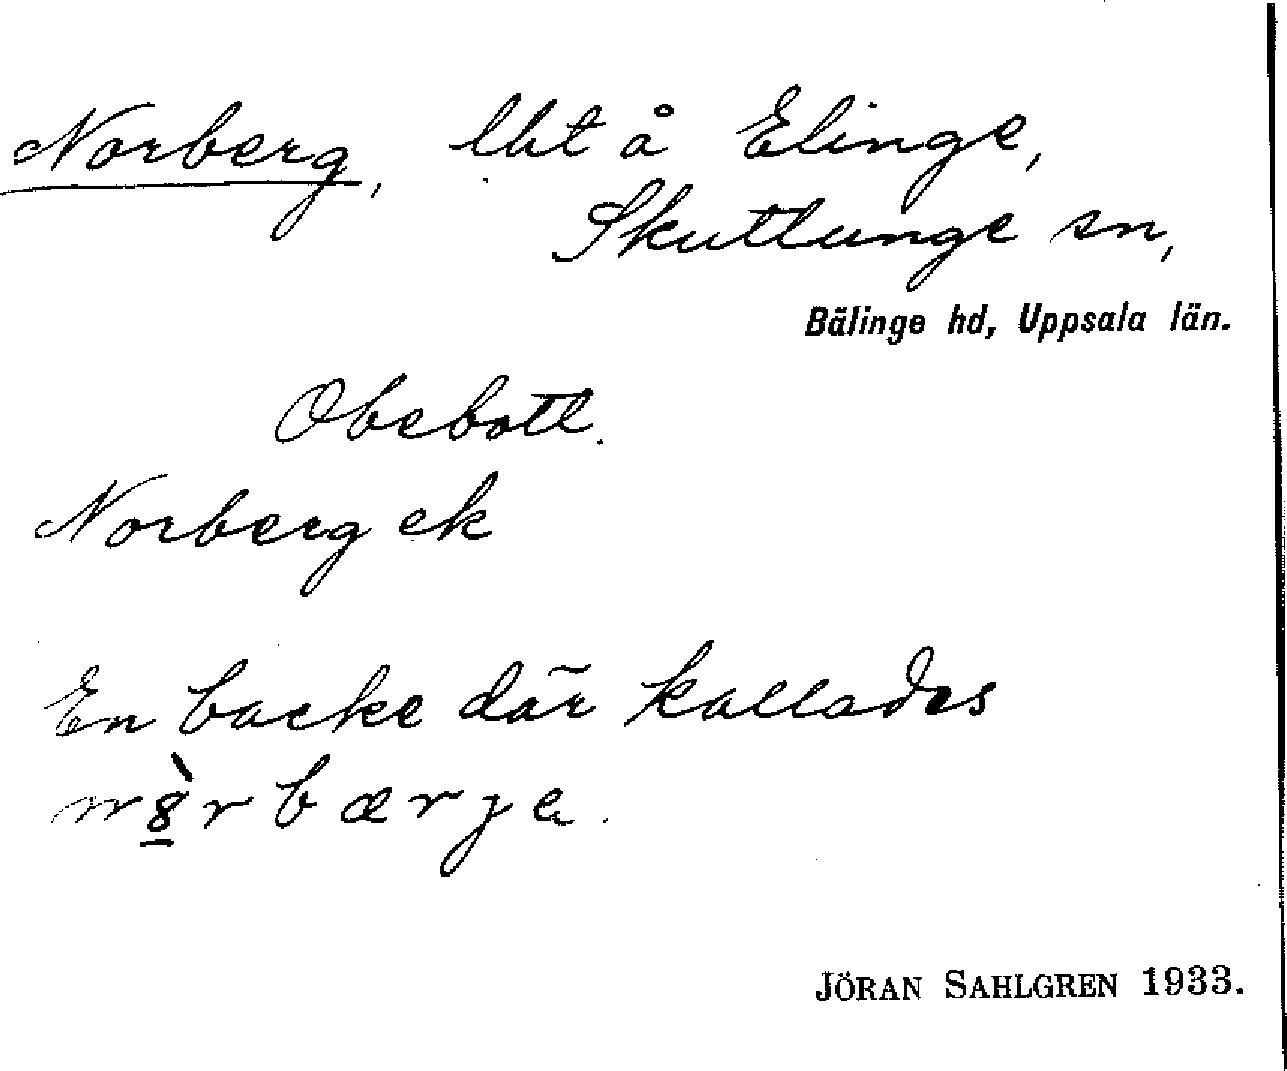 Norberg, lht å Elinge,
Skuttunge sn,
Bälinge hd, Uppsala län.
Obebott.
Norberg ek
En backe där kallades
JÖRAN SAHLGREN 1933.